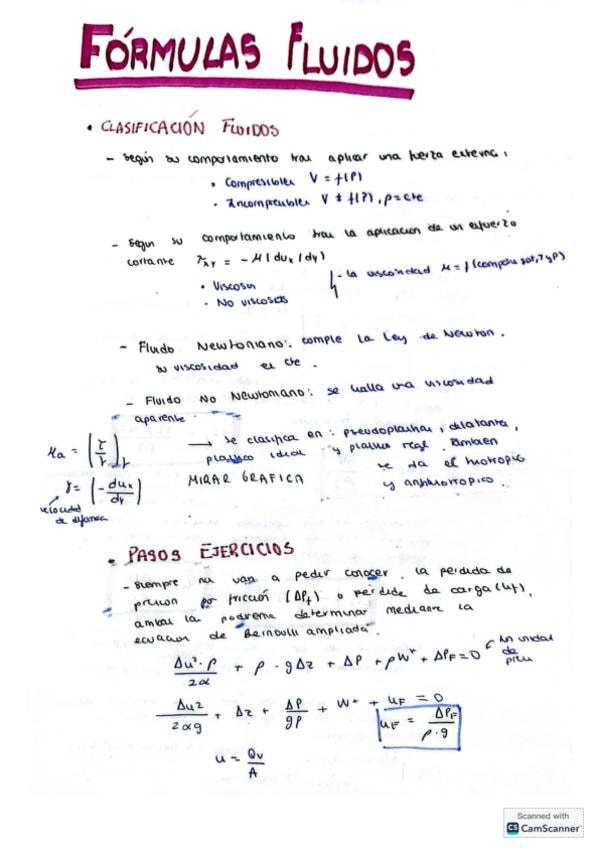 FÓRMULAS FLUIDOS
• CLASIFICACIÓN FLUIDOS
- Según su comportamiento tras aplicar una fuerza externa:
• Compresibles V = f(P)
• Incompresibles V ≠ f(P), ρ = cte
- Segun su comportamiento tras la aplicacion de un esfuerzo
cortante τxy = -μ (dux / dy)
- la viscosidad μ = f (T y P)
• Viscosos
• No viscosos
- Fluido Newtoniano: cumple la Ley de Newton.
su viscosidad es cte.
- Fluido No Newtoniano: se halla una viscosidad
aparente.
μa = (τ/γ)γ
→ se clasifica en: pseudoplastico, dilatante,
plastico ideal y plastico real. Tambien
γ = (- dux/dy)
MIRAR GRAFICA
se da el tixotropico
y antitixotropico.
velocidad
de
• PASOS EJERCICIOS
- Siempre nos van a pedir conocer la perdida de
presion por fricción (ΔPf) o pérdida de carga (uf),
ambas la podremos determinar mediante la
ecuacion de Bernoulli ampliada.
Δu²·ρ/2α + ρ·gΔz + ΔP + ρW* + ΔPF = 0
en unidad
de
presi
Δu2/2αg + Δz + ΔP/gρ + W* + uF = 0
uF = ΔPF/ρ·g
u = Qv/A
Scanned with
CS CamScanner